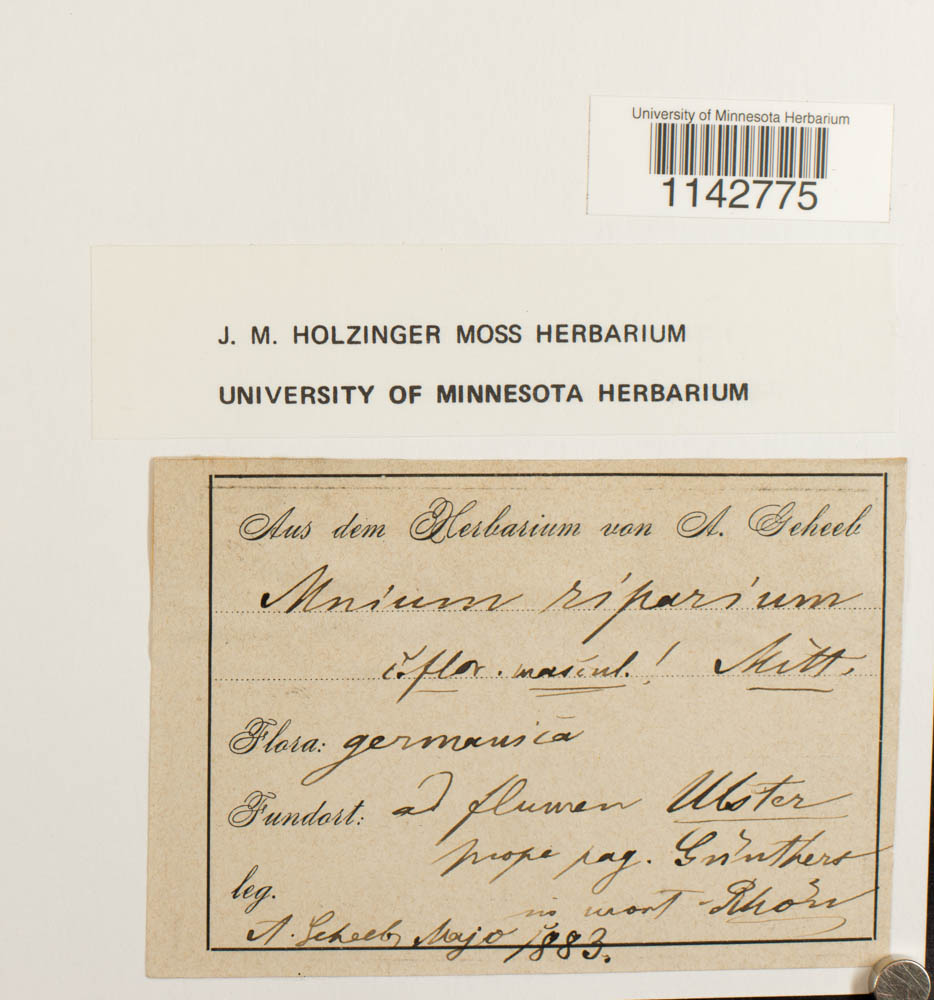 University of Minnesota Herbarium
1142775
J. M. HOLZINGER MOSS HERBARIUM
UNIVERSITY OF MINNESOTA HERBARIUM
Aus dem Herbarium von A. Geheeb
Mnium riparium
c. flor. mascul.! Mitt.
Flora: germanica
Fundort: ad flumen Ulster
prope pag. Günthers
leg.
in mont Rhön
A. Geheeb, Majo 1883.